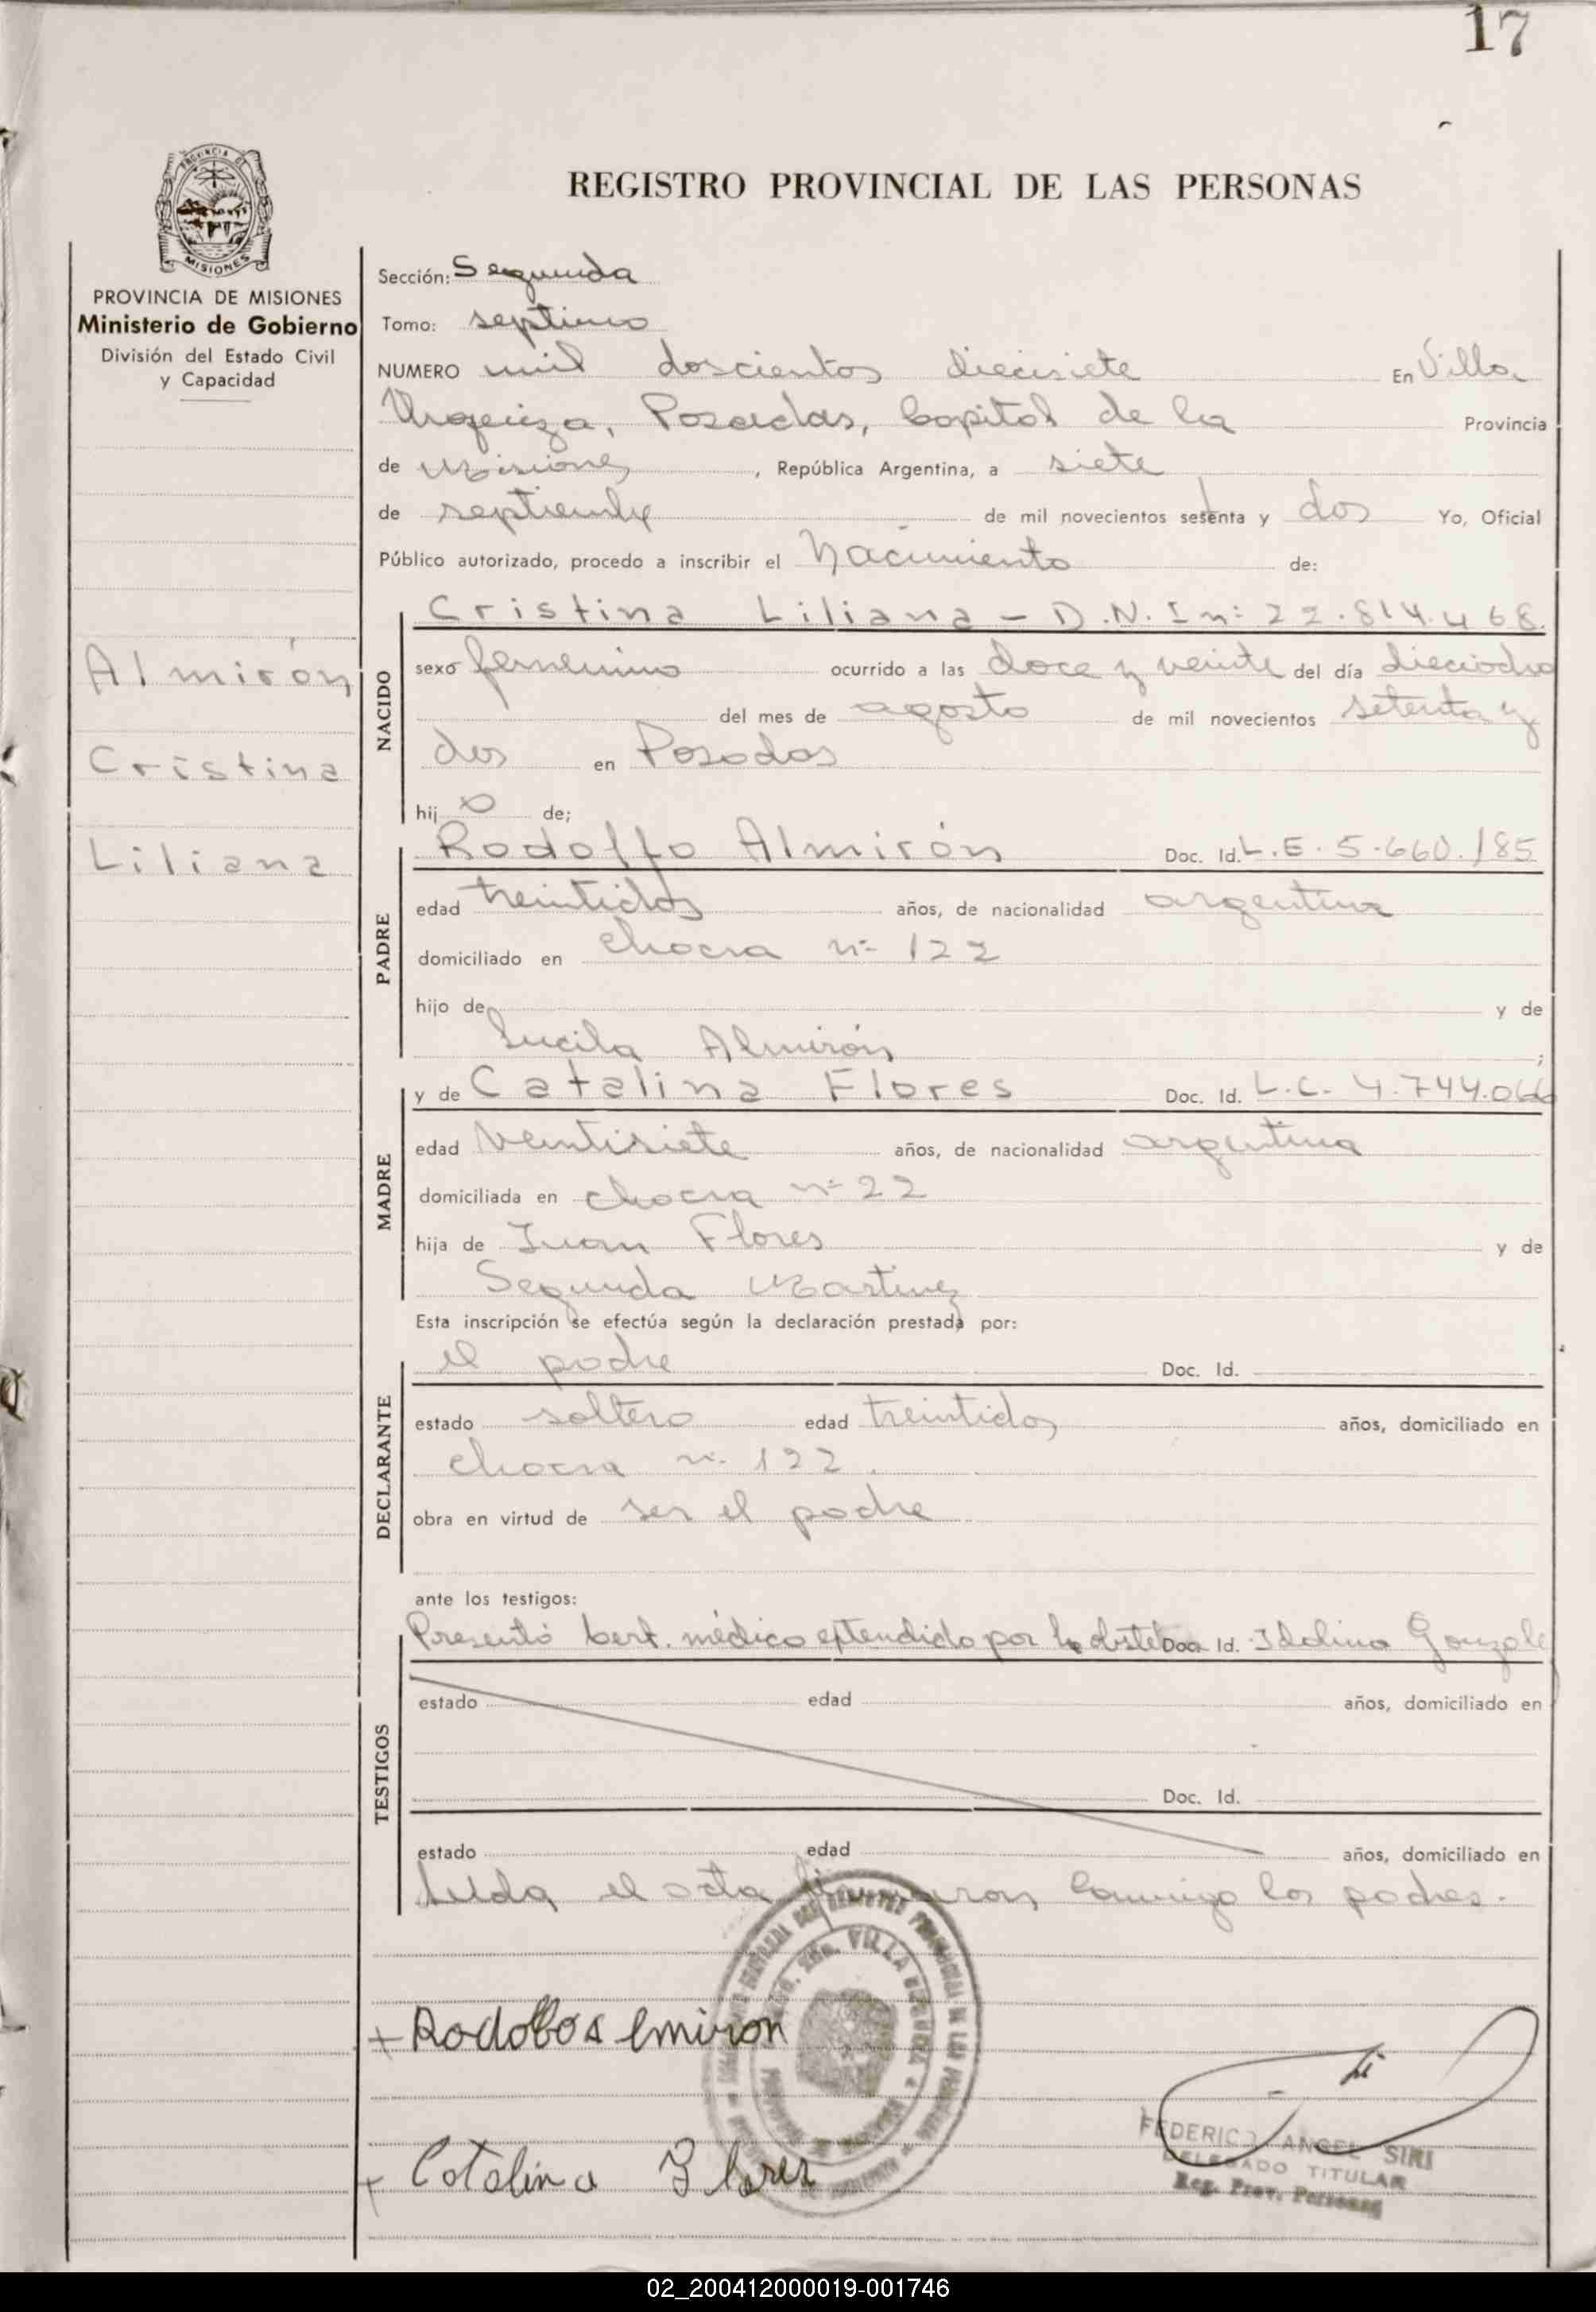 17
REGISTRO PROVINCIAL DE LAS PERSONAS
PROVINCIA DE MISIONES
Ministerio de Gobierno
División del Estado Civil
y Capacidad
Almirón
Cristina
Liliana
Sección: Segunda
Tomo: septimo
NUMERO mil doscientos diecisiete En Villa
Urquiza, Posadas, Capital de la Provincia
de Misiones, República Argentina, a siete
de septiembre de mil novecientos setenta y dos Yo, Oficial
Público autorizado, procedo a inscribir el Nacimiento de:
NACIDO
Cristina Liliana - D.N.I nº 22.814.468.
sexo femenino ocurrido a las doce y veinte del día dieciocho
del mes de agosto de mil novecientos setenta y
dos en Posadas
hij a de;
PADRE
Rodolfo Almirón Doc. Id. L.E. 5.660.185
edad treintidos años, de nacionalidad argentina
domiciliado en chacra nº 122
hijo de y de
Lucila Almirón ;
MADRE
y de Catalina Flores Doc. Id. L.C. 4.744.066
edad veintisiete años, de nacionalidad argentina
domiciliada en chacra nº 22
hija de Juan Flores y de
Segunda Martinez
Esta inscripción se efectúa según la declaración prestada por:
DECLARANTE
el padre Doc. Id.
estado soltero edad treintidos años, domiciliado en
chacra nº 122.
obra en virtud de ser el padre
ante los testigos:
TESTIGOS
Presentó Cert. médico extendido por la obstetra Doc. Id. Idolina Gonzale
estado edad años, domiciliado en
Doc. Id.
estado edad años, domiciliado en
Leida el acta firmaron conmigo los padres.
+ Rodolfo Almiron
+ Catalina Flores
FEDERICO ANGEL SIRI
DELEGADO TITULAR
Reg. Prov. Personas
02_200412000019-001746